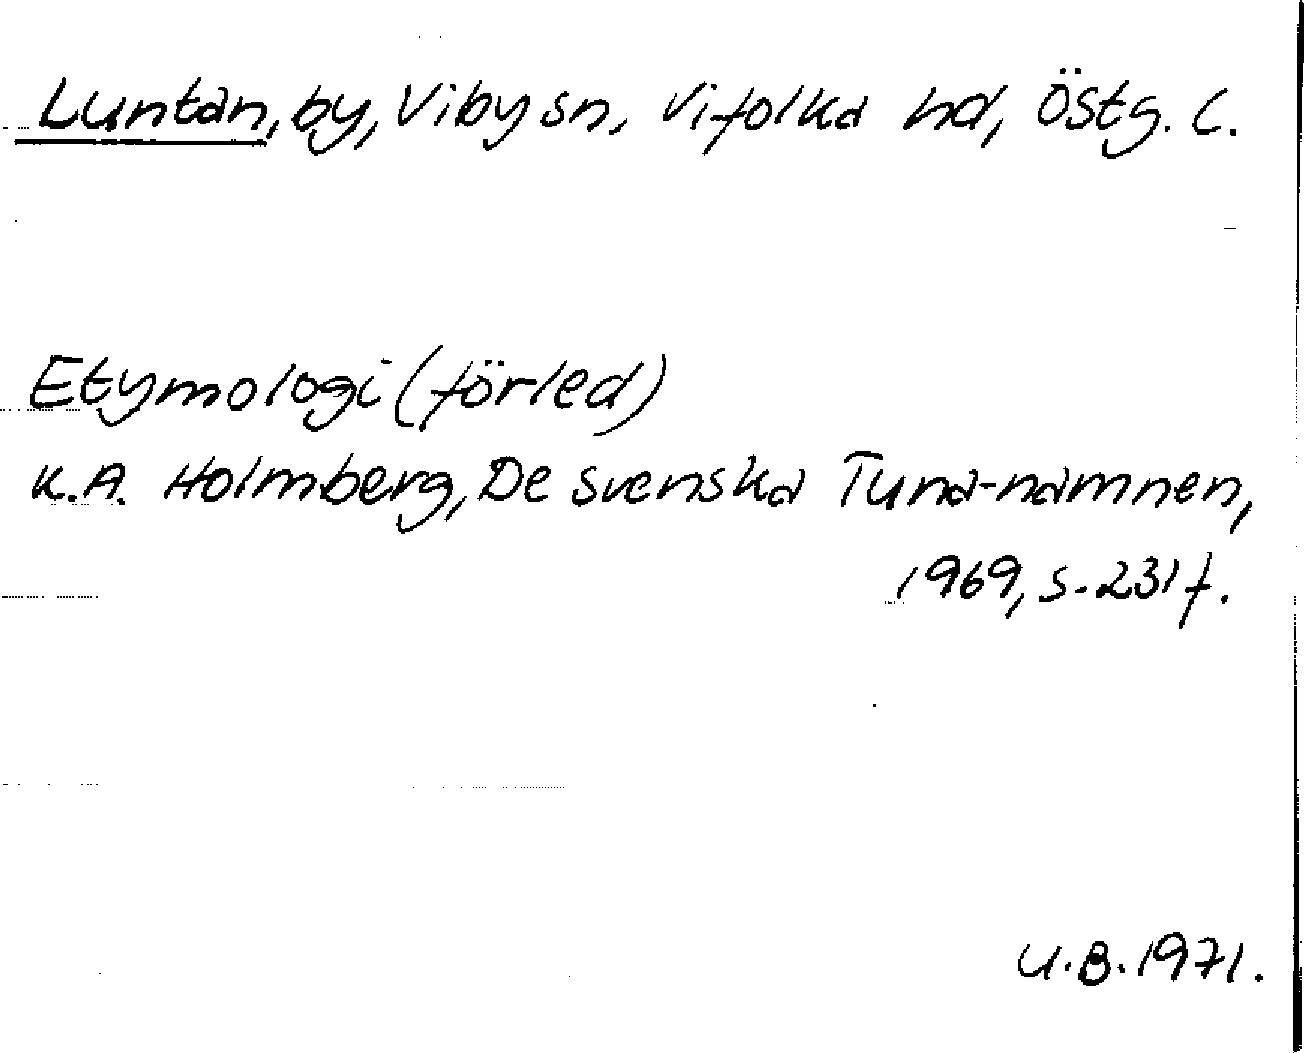 Luntan, by, Viby sn, Vifolka hd, Östg. l.
Etymologi (förled)
K.A. Holmberg, De svenska Tuna-namnen,
1969, s. 231 f.
U.B. 1971.